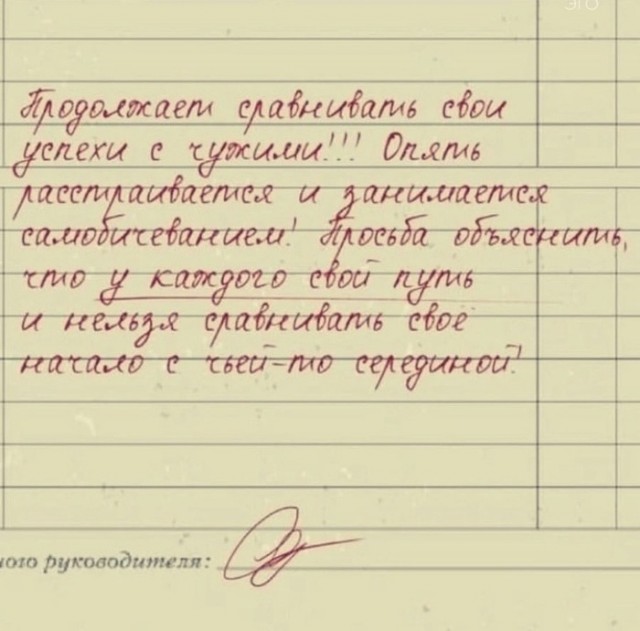 эго
Продолжает сравнивать свои
успехи с чужими!!! Опять
расстраивается и занимается
самобичеванием! Просьба объяснить,
что у каждого свой путь
и нельзя сравнивать своё
начало с чьей-то серединой!
ного руководителя: